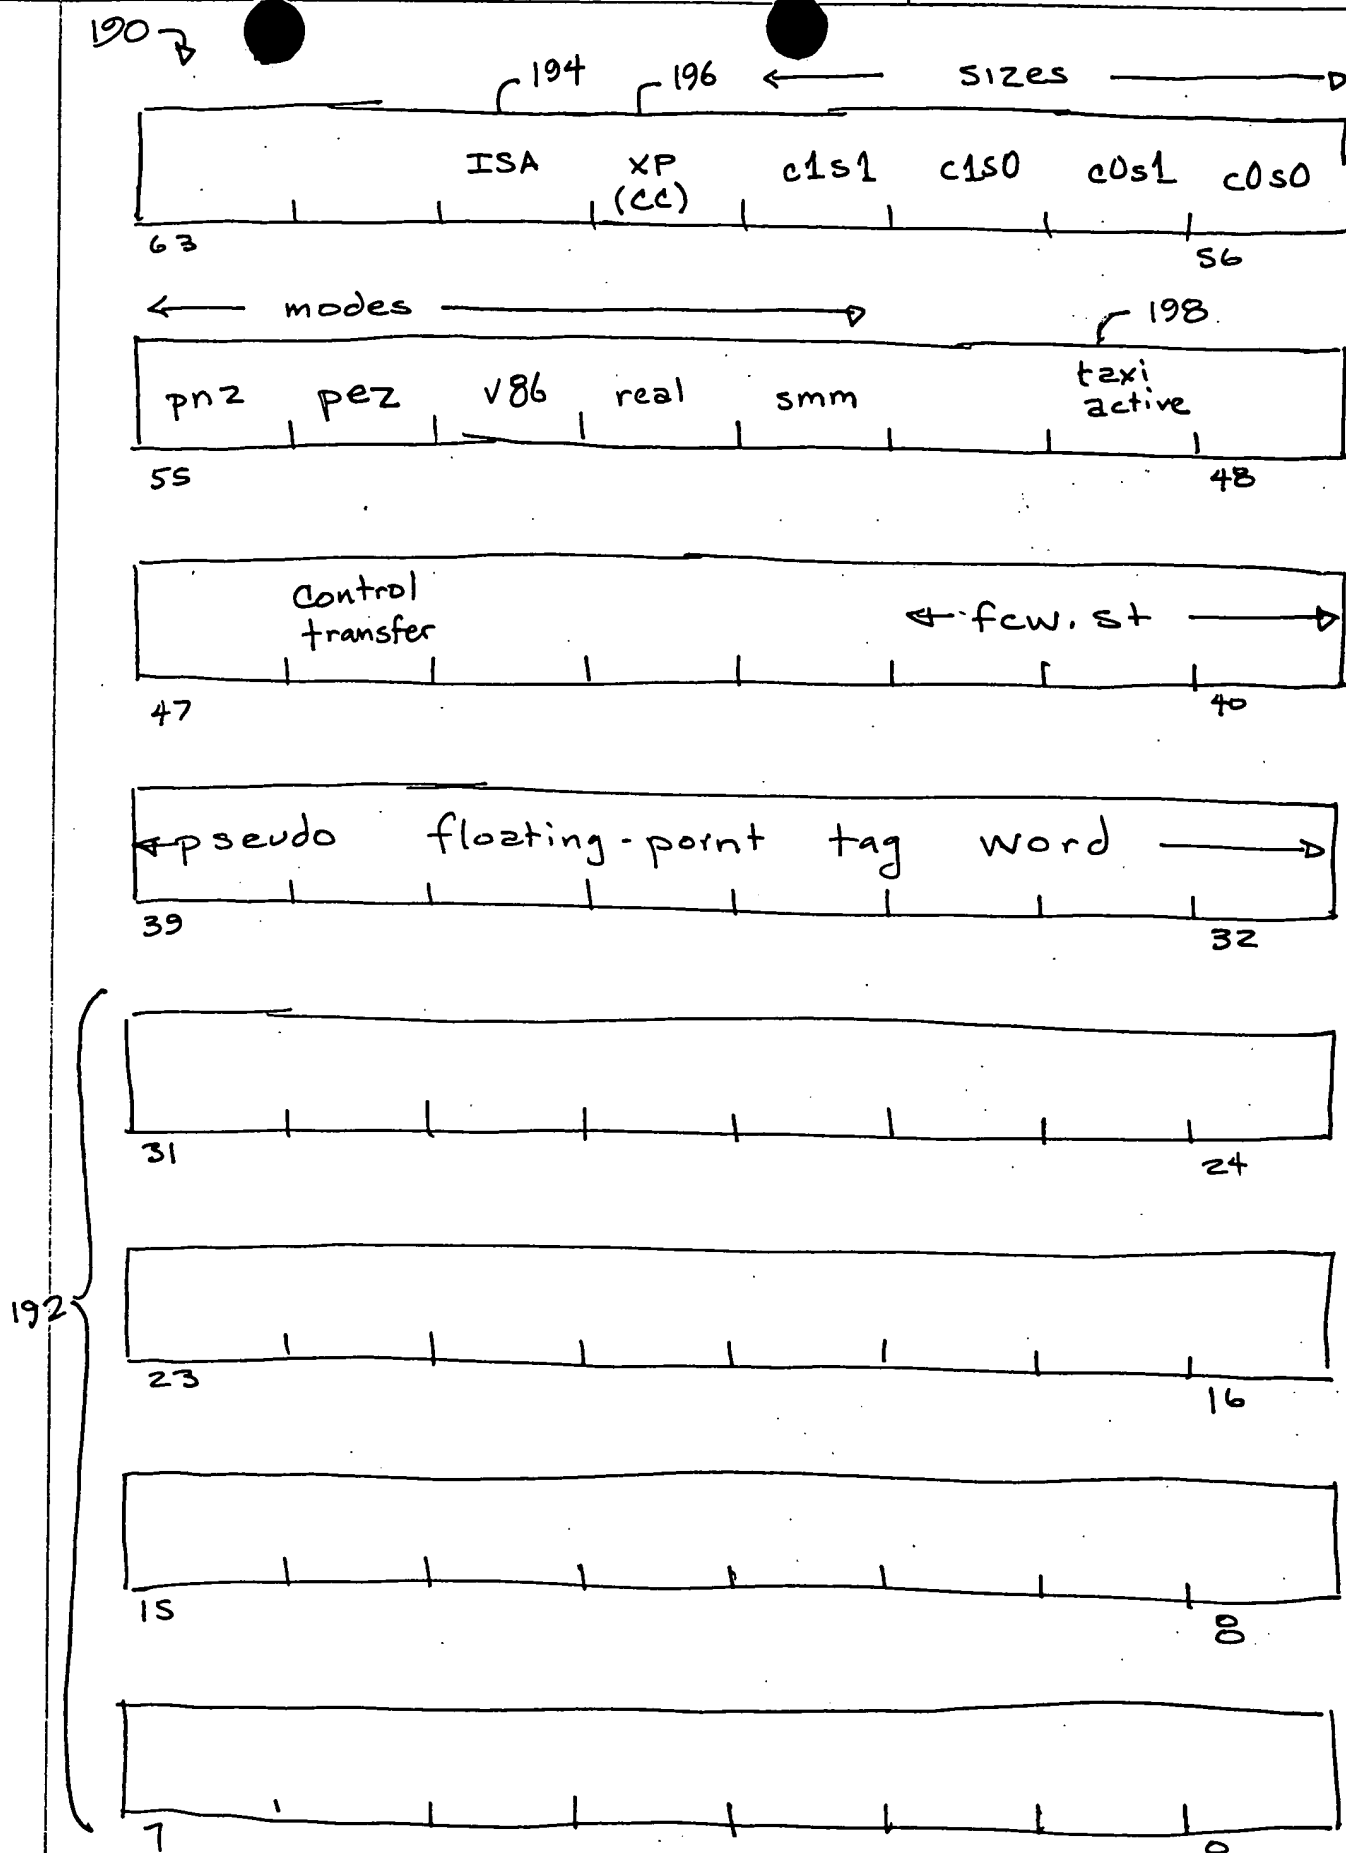 190
194 196 sizes
ISA XP (CC) c1s1 c1s0 c0s1 c0s0
63 56
modes 198
pnz pez v86 real smm taxi active
55 48
control transfer fcw.st
47 40
pseudo floating-point tag word
39 32
31 24
192
23 16
15 8
7 0